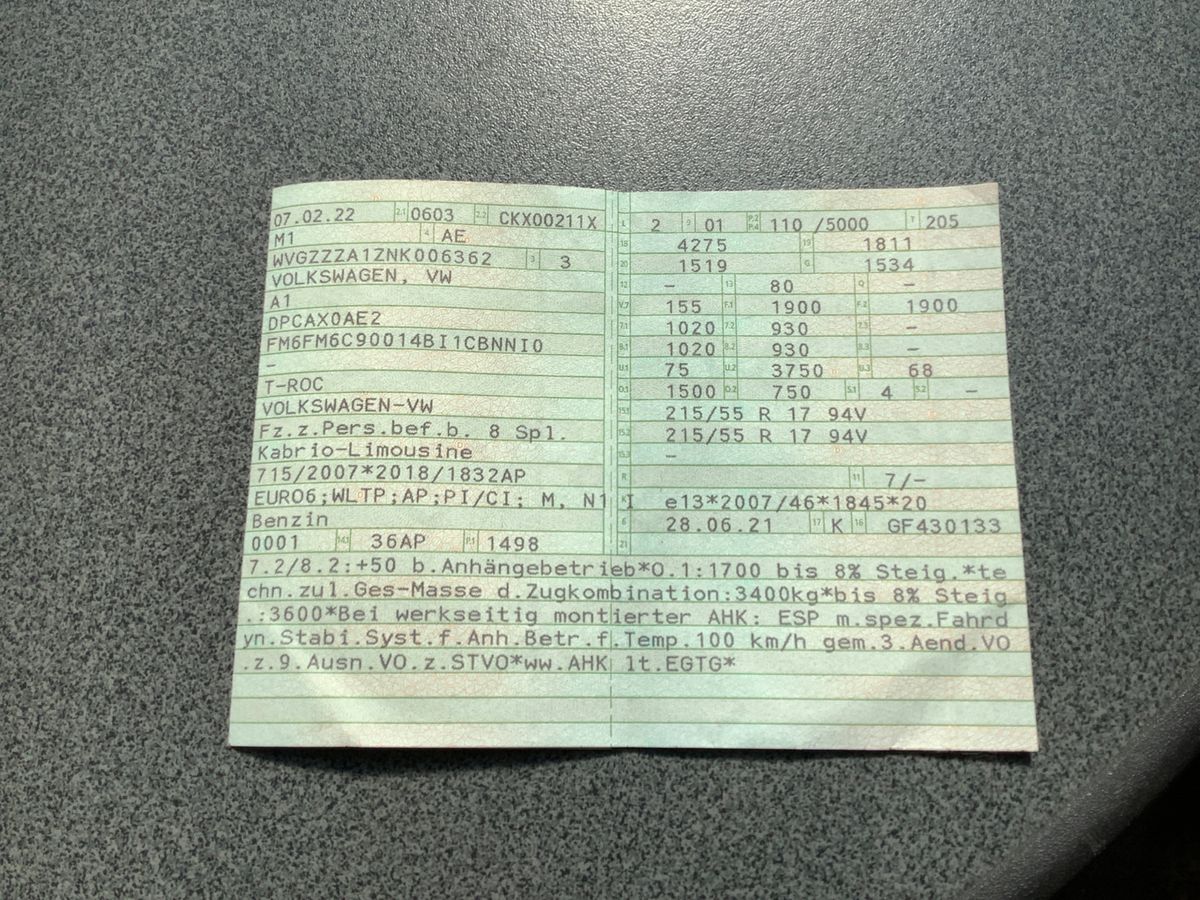 07.02.22 2.1 0603 2.2 CKX00211X
M1 4 AE
WVGZZZA1ZNK006362 3 3
VOLKSWAGEN, VW
A1
DPCAX0AE2
FM6FM6C90014BI1CBNNI0
–
T-ROC
VOLKSWAGEN-VW
Fz.z.Pers.bef.b. 8 Spl.
Kabrio-Limousine
715/2007*2018/1832AP
EURO6;WLTP;AP;PI/CI; M, N1 I
Benzin
0001 14.1 36AP P.1 1498
L 2 9 01 P.2 P.4 110 /5000 T 205
18 4275 19 1811
20 1519 G 1534
12 – 13 80 Q –
V.7 155 F.1 1900 F.2 1900
7.1 1020 7.2 930 7.3 –
8.1 1020 8.2 930 8.3 –
U.1 75 U.2 3750 U.3 68
O.1 1500 O.2 750 S.1 4 S.2 –
15.1 215/55 R 17 94V
15.2 215/55 R 17 94V
15.3 –
R 11 7/–
K e13*2007/46*1845*20
6 28.06.21 17 K 16 GF430133
21
7.2/8.2:+50 b.Anhängebetrieb*O.1:1700 bis 8% Steig.*te
chn.zul.Ges-Masse d.Zugkombination:3400kg*bis 8% Steig
.:3600*Bei werkseitig montierter AHK: ESP m.spez.Fahrd
yn.Stabi.Syst.f.Anh.Betr.f.Temp.100 km/h gem.3.Aend.VO
.z.9.Ausn.VO.z.STVO*ww.AHK lt.EGTG*